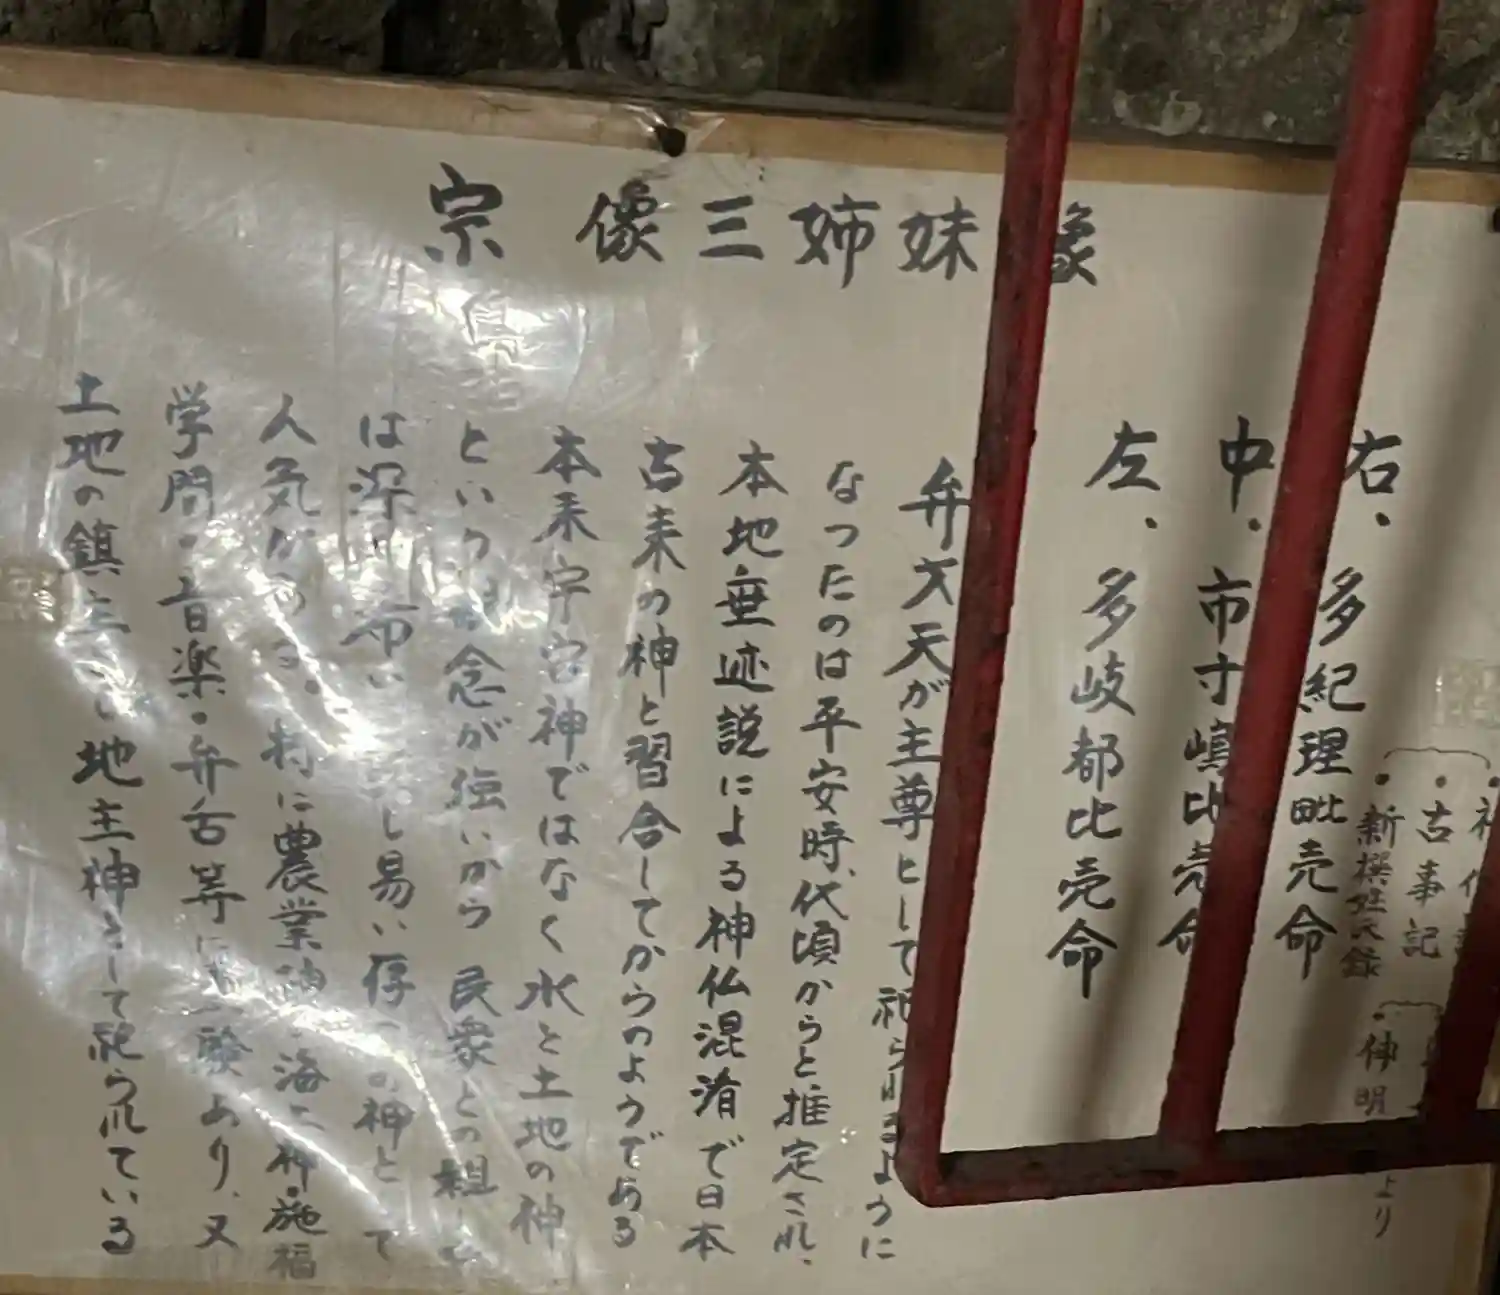 宗像三姉妹像
右、多紀理毗売命
中、市寸嶋比売命
左、多岐都比売命
古事記
新撰姓氏録
神明
より
弁才天が主尊として祀られるように
なったのは平安時代頃からと推定され、
本地垂迹説による神仏混淆で日本
古来の神と習合してからのようである
本来宇宮神ではなく水と土地の神
という 念が強いから民衆との
は深 し易い 神と て
人気がある。特に農業神・海上神・施福
学問・音楽・弁舌等に 験あり、又
土地の鎮主 地主神として祀られている